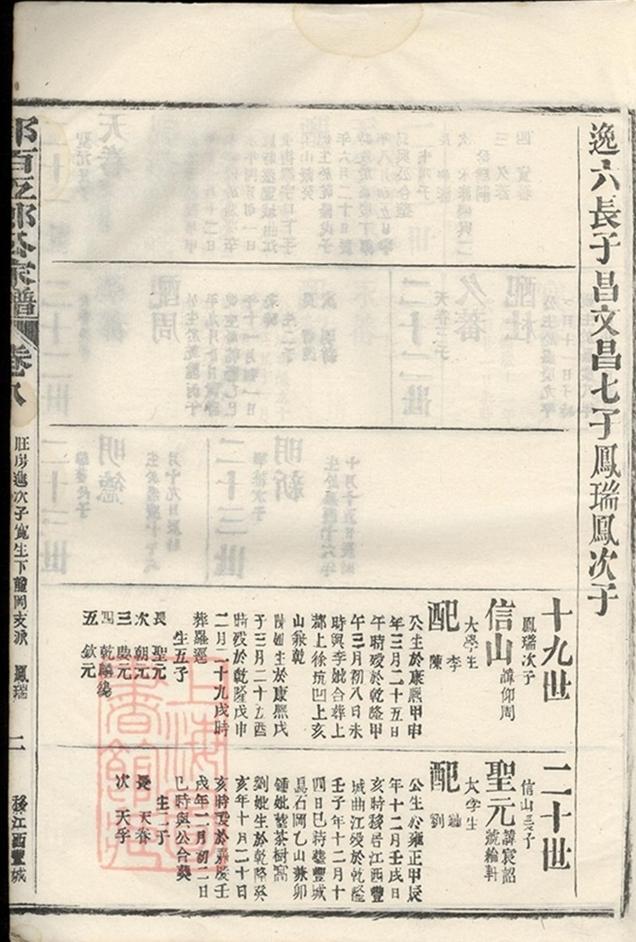 逸六長子昌文昌七子鳳瑞鳳次子
十九世
鳳瑞次子
信山
諱仰周
大學生
配
李
陳
公生於康熙甲申
年三月二十五日
午時歿於乾隆甲
午三月初八日未
時與李妣合葬上
郡上徐坑凹上亥
山兼乾
陳妣生於康熙戊
子三月二十五酉
時歿於乾隆戊申
二月二十九戌時
葬羅逕
生五子
長 聖元
次 朝元
三 典元
四 乾元
五 欽元
二十世
信山長子
聖元
諱宸詔
號綸軒
大学生
配
鍾
劉
公生於雍正甲辰
年十二月壬戌日
亥時移居江西豐
城曲江歿於乾隆
壬子年十二月十
四日巳時葬豐城
烏石岡乙山兼卯
鍾妣葬茶樹窩
劉妣生於乾隆癸
亥年十月二十日
亥時歿於嘉慶壬
戌年二月初二日
巳時與公合葬
生二子
長 天春
次 天孚
郭百五郎公家譜
卷八
旺房逸次子寬生下龍岡支派 鳳瑞
二
移江西豐城
上海
書館藏